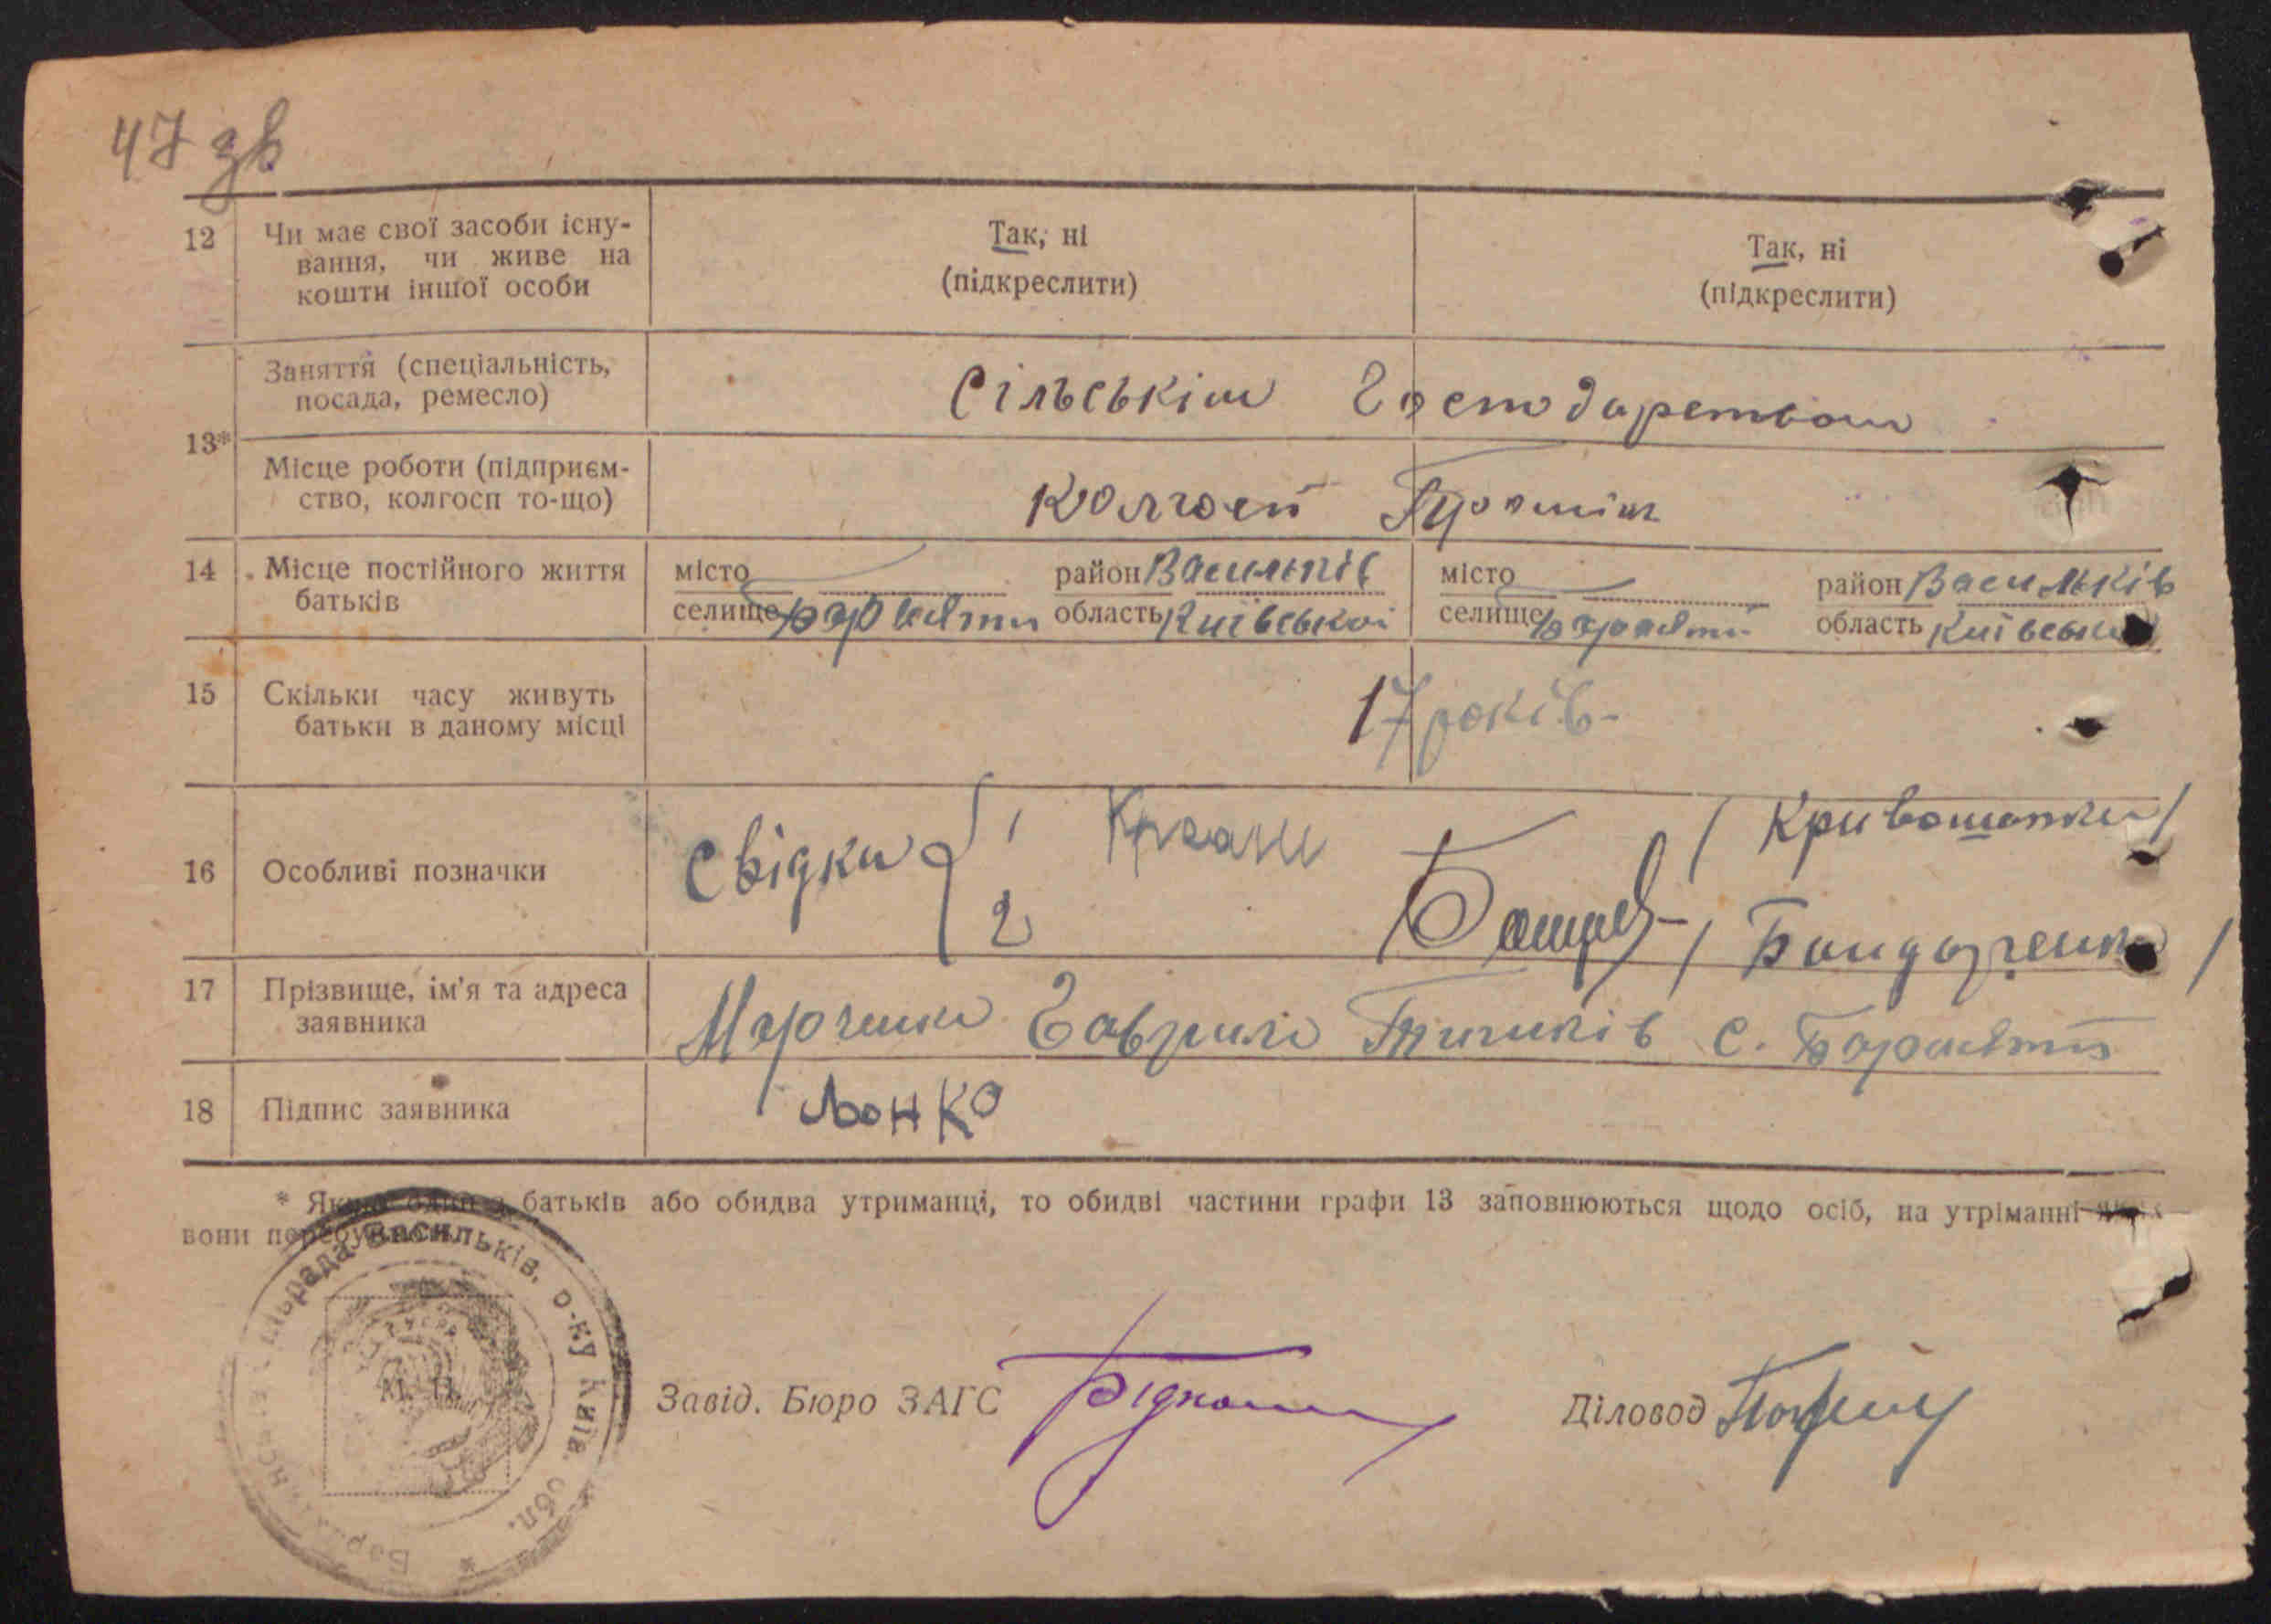 47 зв
12 Чи має свої засоби існу-
вання, чи живе на
кошти іншої особи
Так, ні
(підкреслити)
Так, ні
(підкреслити)
13*
Заняття (спеціальність,
посада, ремесло)
Сільськім Господарством
Місце роботи (підприєм-
ство, колгосп то-що)
Колгосп
14 Місце постійного життя
батьків
місто район Васильків
селище область Київської
місто район Васильків
селище область
15 Скільки часу живуть
батьки в даному місці
17 років
16 Особливі позначки
Свідки 1
/ Кривошапка /
2
/ Бондаренко /
17 Прізвище, ім'я та адреса
заявника
Марченко Гаврило с.
18 Підпис заявника
* Якщо один з батьків або обидва утриманці, то обидві частини графи 13 заповнюються щодо осіб, на утріманні яких
вони перебувають
сільрада Васильків. р-ку Київ. обл. *
М. П.
Завід. Бюро ЗАГС
Діловод